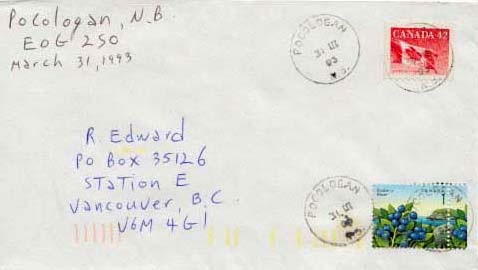 Pocologan, N.B.
E0G 2S0
March 31, 1993
POCOLOGAN
31 III
93
CANADA 42
R. Edward
PO Box 35126
Station E
Vancouver, B.C.
V6M 4G1
POCOLOGAN
CANADA
1